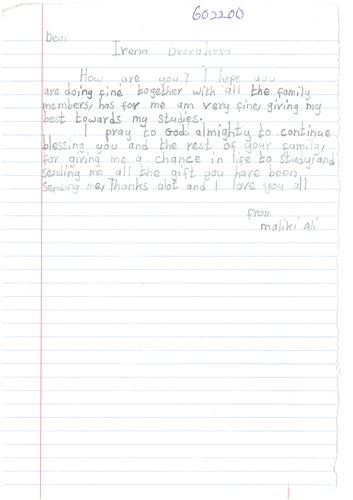 602200
Dear
Irena Dvorakova
How are you? I hope you
are doing fine together with all the family
members, has for me am very fine, giving my
best towards my studies.
I pray to God almighty to continue
blessing you and the rest of your family,
for giving me a chance in life to study and
sending me all the gift you have been
sending me, Thanks alot and I love you all
from
maliki Ali